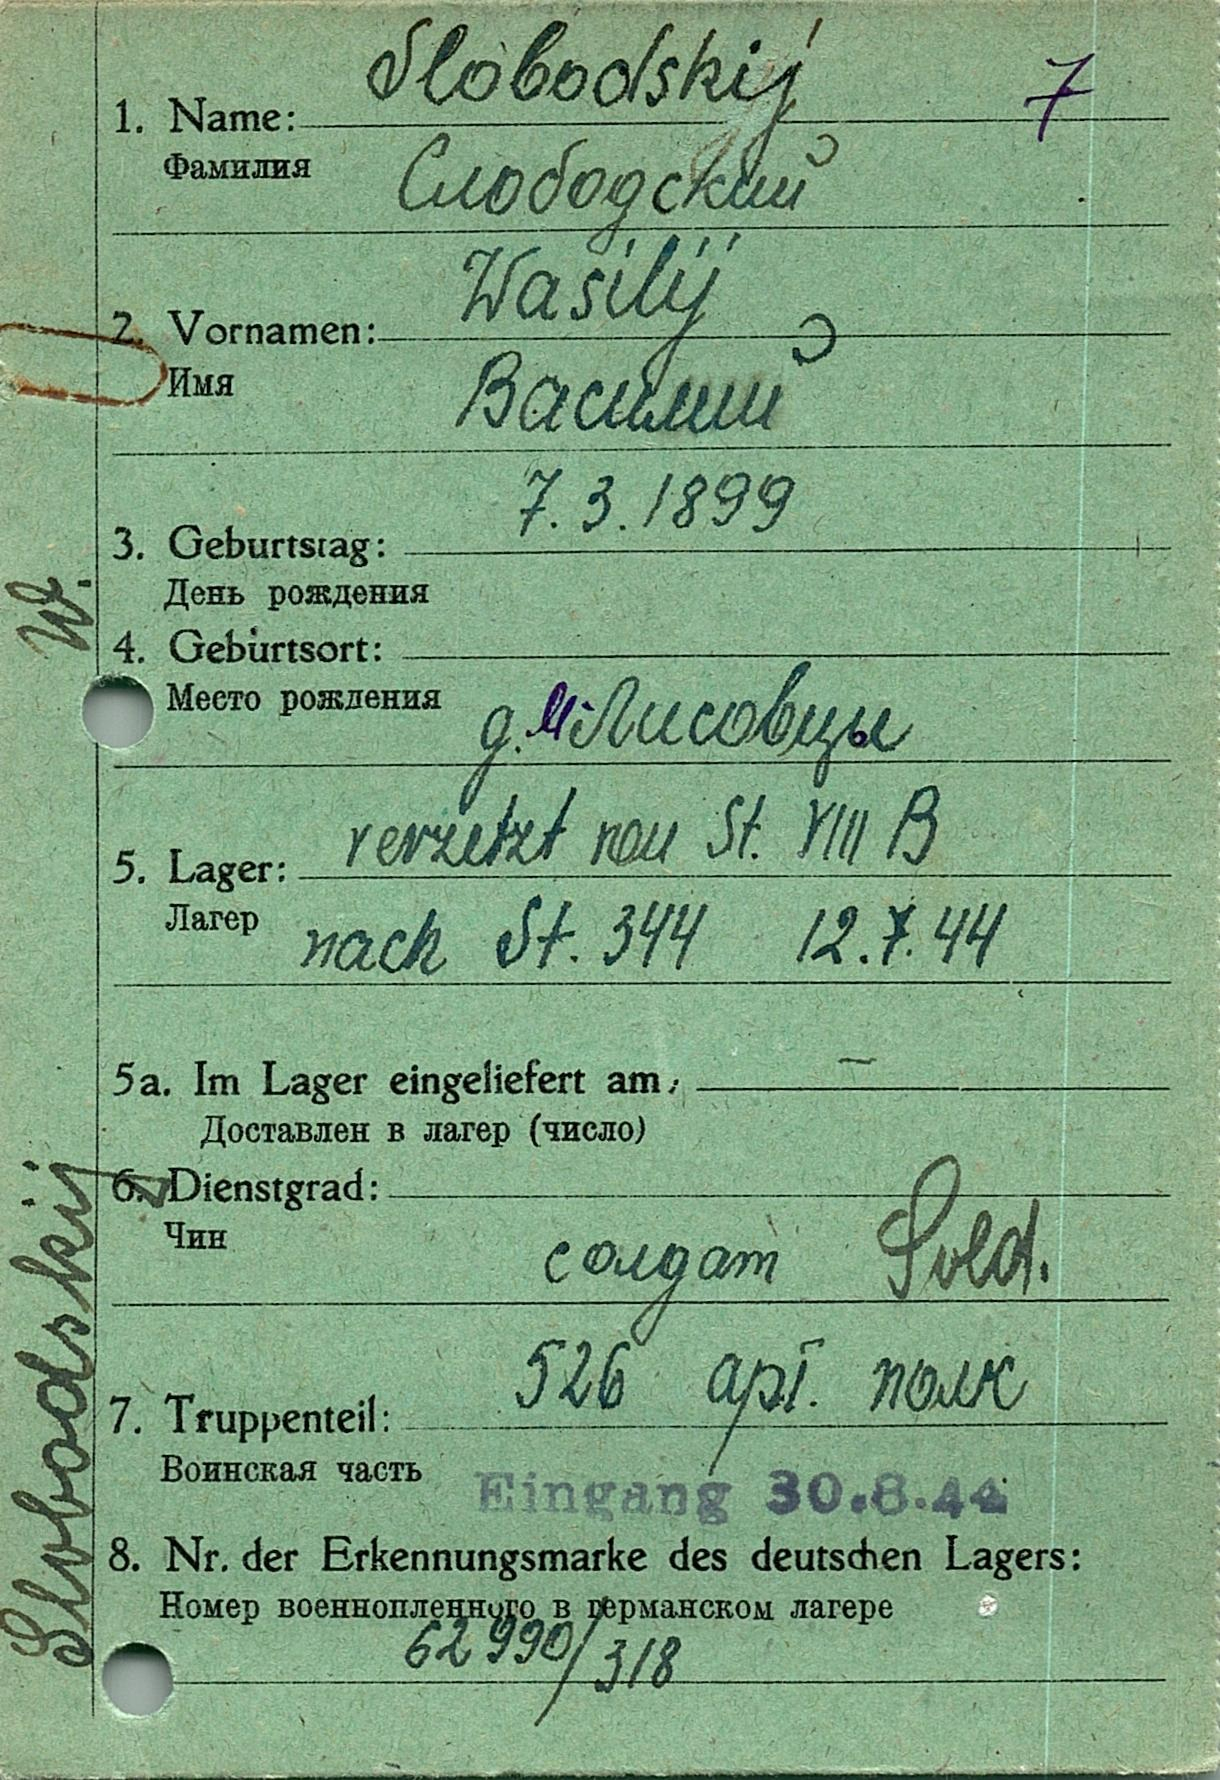 Slobodskij 7
1. Name:
Фамилия
Слободский
Wasilij
2. Vornamen:
Имя
Василий
7.3.1899
3. Geburtstag:
День рождения
4. Geburtsort:
Место рождения
д. М-Лисовцы
5. Lager: verzetzt von St. VIII B
Лагер
nach St. 344 12.7.44
5a. Im Lager eingeliefert am: —
Доставлен в лагер (число)
6. Dienstgrad:
Чин
солдат Sold.
526 арт. полк
7. Truppenteil:
Воинская часть
Eingang 30.8.44
8. Nr. der Erkennungsmarke des deutschen Lagers:
Номер военнопленного в германском лагере
62990/318
Slobodskij W.